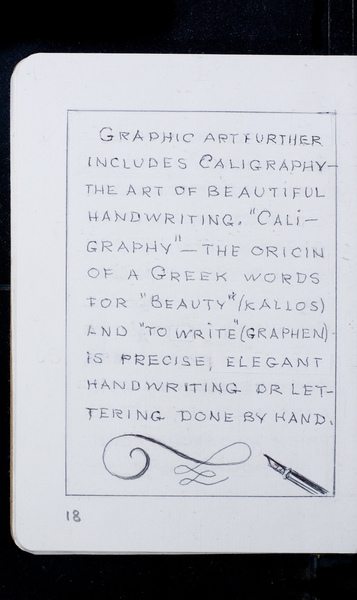 GRAPHIC ART FURTHER
INCLUDES CALIGRAPHY—
THE ART OF BEAUTIFUL
HANDWRITING. "CALI—
GRAPHY"— THE ORIGIN
OF A GREEK WORDS
FOR "BEAUTY" (KALLOS)
AND "TO WRITE" (GRAPHEN)-
IS PRECISE, ELEGANT
HANDWRITING OR LET-
TERING DONE BY HAND.
18